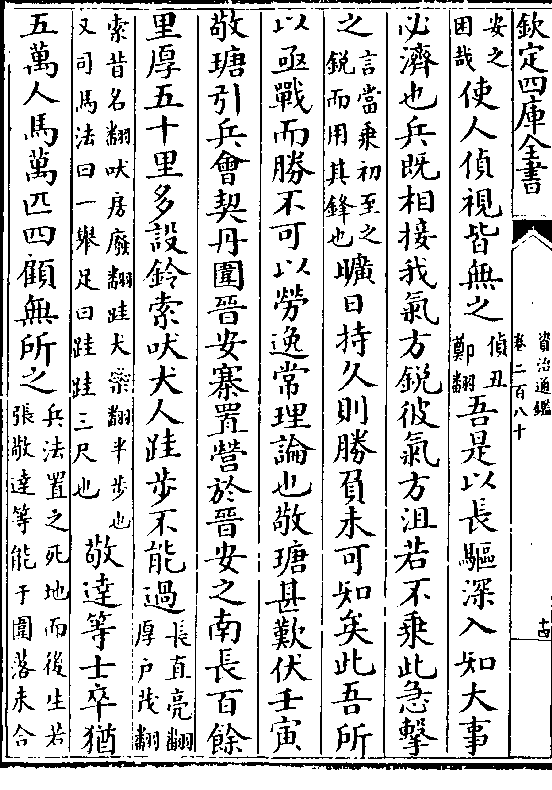 欽定四庫全書
資治通鑑
卷二百八十
十四
安之
困哉
使人偵視皆無之
偵丑
鄭翻
吾是以長驅深入知大事
必濟也兵既相接我氣方銳彼氣方沮若不乘此急擊
之
言當乘初至之
銳而用其鋒也
曠日持久則勝負未可知矣此吾所
以亟戰而勝不可以勞逸常理論也敬瑭甚歎伏壬寅
敬瑭引兵會契丹圍晉安寨置營於晉安之南長百餘
里厚五十里多設鈴索吠犬人跬步不能過
長直亮翻
厚戶茂翻
索昔各翻吠房廢翻跬犬橤翻半步也
又司馬法曰一舉足曰跬跬三尺也
敬達等士卒猶
五萬人馬萬匹四顧無所之
兵法置之死地而後生若
張敬達等能于圍落未合